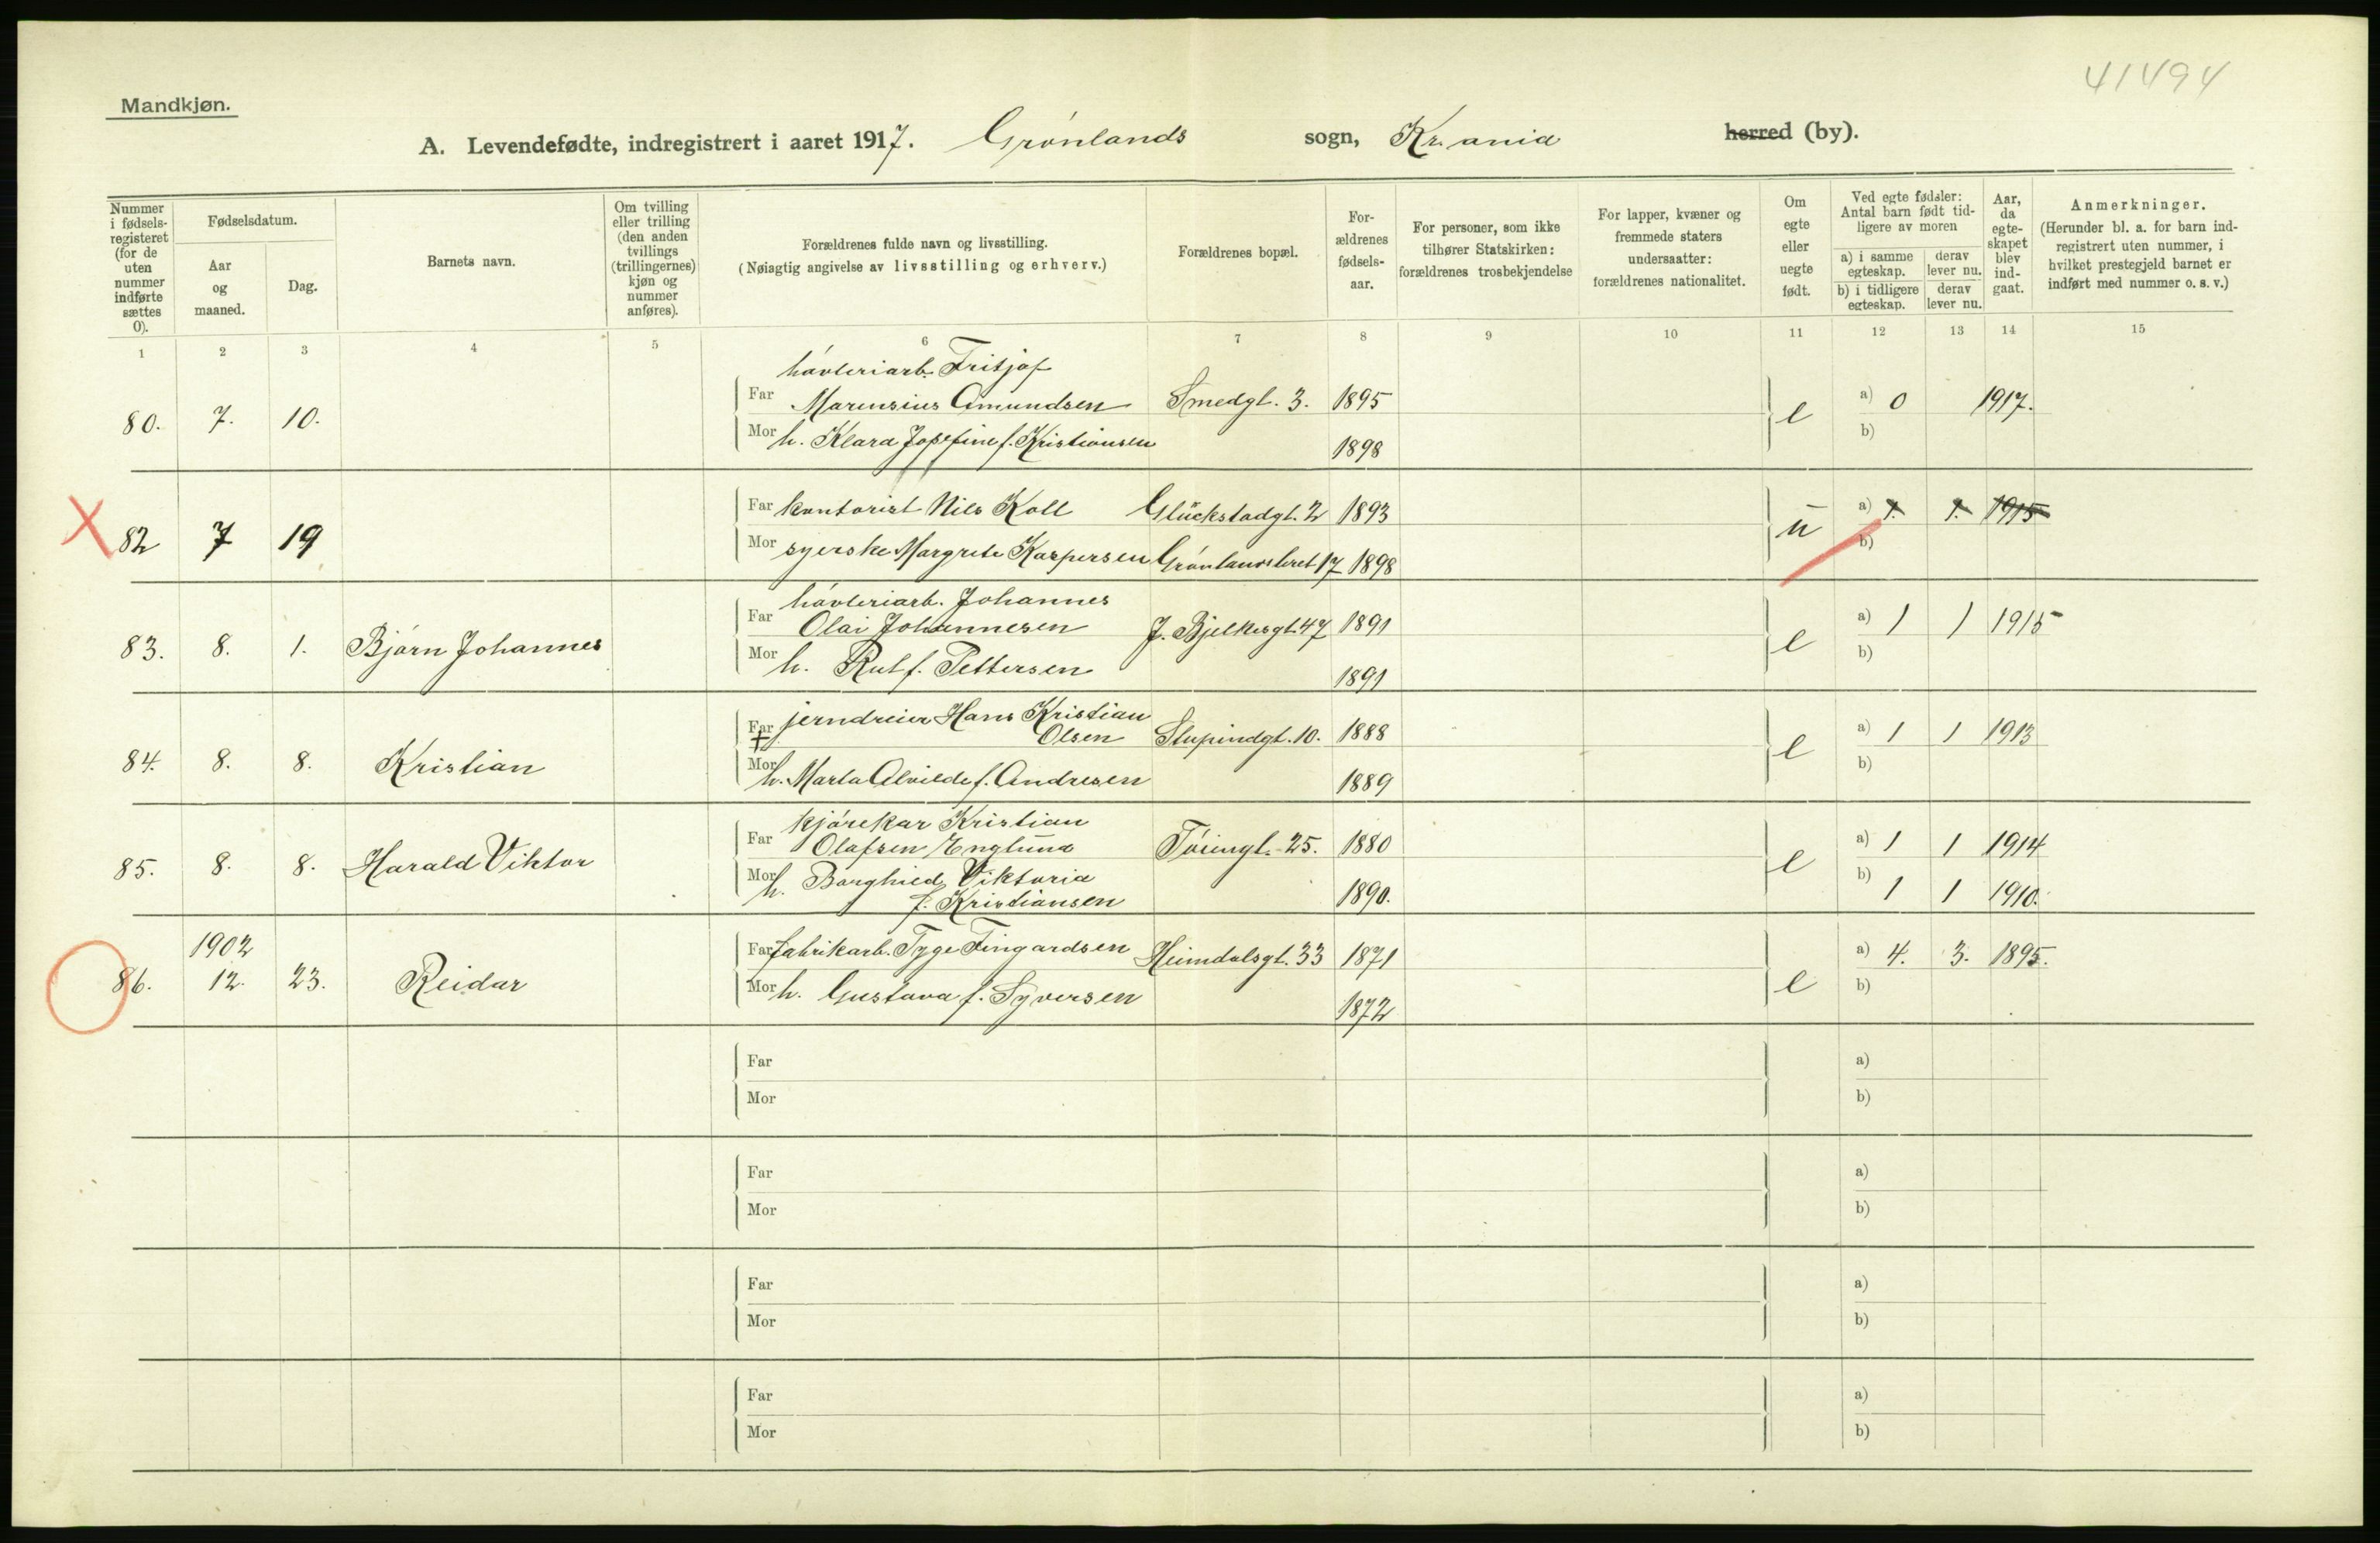 41494
Mandkjøn.
A. Levendefødte, indregistrert i aaret 1917. Grønlands sogn, Kr.ania herred (by).
Nummer i fødsels-registeret (for de uten nummer indførte sættes 0).
Fødselsdatum.
Aar og maaned.
Dag.
Barnets navn.
Om tvilling eller trilling (den anden tvillings (trillingernes) kjøn og nummer anføres).
Forældrenes fulde navn og livsstilling.
(Nøiagtig angivelse av livsstilling og erhverv.)
Forældrenes bopæl.
For-ældrenes fødsels-aar.
For personer, som ikke tilhører Statskirken: forældrenes trosbekjendelse
For lapper, kvæner og fremmede staters undersaatter: forældrenes nationalitet.
Om egte eller uegte født.
Ved egte fødsler: Antal barn født tid-ligere av moren
a) i samme egteskap. derav lever nu.
b) i tidligere egteskap. derav lever nu.
Aar, da egte-skapet blev ind-gaat.
Anmerkninger.
(Herunder bl. a. for barn ind-registrert uten nummer, i hvilket prestegjeld barnet er indført med nummer o. s. v.)
1 2 3 4 5 6 7 8 9 10 11 12 13 14 15
høvleriarb. Fritjof
80. 7. 10. Far Marensius Amundsen Smedgt. 3. 1895 e a) 0 1917.
Mor h. Klara Josefine f. Kristiansen 1898 b)
X 82 7 19 Far kontorist Nils Koll Glückstadgt. 2 1893 u a) 1. 1. 1915
Mor syerske Margrete Kaspersen Grønlandsleret 17 1898 b)
høvleriarb. Johannes
83. 8. 1. Bjørn Johannes Far Olai Johannesen J. Bjelkesgt. 47 1891 e a) 1 1 1915
Mor h. Rut f. Pettersen 1891 b)
Far jerndreier Hans Kristian
84. 8. 8. Kristian + Olsen Stupindgt. 10. 1888 e a) 1 1 1913
Mor h. Marta Alvilde f. Andresen 1889 b)
kjørekar Kristian
85. 8. 8. Harald Viktor Far Olafsen Englund Tøiengt. 25. 1880 e a) 1 1 1914
Mor h. Borghild Viktoria
f. Kristiansen 1890. b) 1 1 1910.
1902
86. 12. 23. Reidar Far fabrikarb. Tyge Fingardsen Heimdalsgt. 33 1871 e a) 4. 3. 1895.
Mor h. Gustava f. Syversen 1872 b)
Far a)
Mor b)
Far a)
Mor b)
Far a)
Mor b)
Far a)
Mor b)